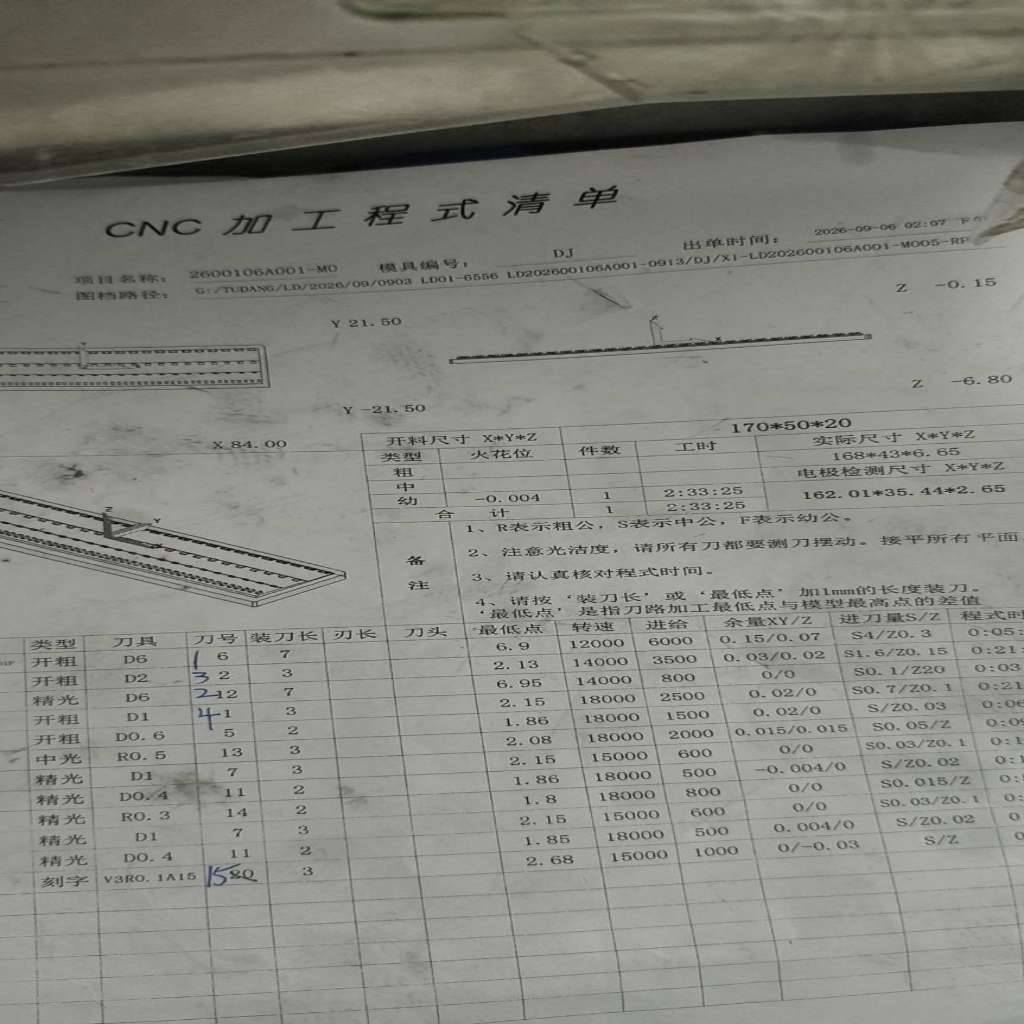 CNC 加工程式清单
项目名称: 2600106A001-M0 模具编号: DJ 出单时间: 2026-09-06 02:07
图档路径: G:/TUDANG/LD/2026/09/0903 LD01-6556 LD202600106A001-0913/DJ/X1-LD202600106A001-M005-RP
Z -0.15
Y 21.50
Z -6.80
Y -21.50
X 84.00
开料尺寸 X*Y*Z 170*50*20
类型 火花位 件数 工时 实际尺寸 X*Y*Z
粗 168*43*6.65
中 电极检测尺寸 X*Y*Z
幼 -0.004 1 2:33:25 162.01*35.44*2.65
合 计 1 2:33:25
备注
1、R表示粗公,S表示中公,F表示幼公。
2、注意光洁度,请所有刀都要测刀摆动。接平所有平面
3、请认真核对程式时间。
4、请按‘装刀长’或‘最低点’加1mm的长度装刀。
‘最低点’是指刀路加工最低点与模型最高点的差值
类型 刀具 刀号 装刀长 刃长 刀头 最低点 转速 进给 余量XY/Z 进刀量S/Z 程式时
开粗 D6 1 6 7 6.9 12000 6000 0.15/0.07 S4/Z0.3 0:05:
开粗 D2 3 2 3 2.13 14000 3500 0.03/0.02 S1.6/Z0.15 0:21:
精光 D6 2 12 7 6.95 14000 800 0/0 S0.1/Z20 0:03
开粗 D1 4 1 3 2.15 18000 2500 0.02/0 S0.7/Z0.1 0:21
开粗 D0.6 5 2 1.86 18000 1500 0.02/0 S/Z0.03 0:06
中光 R0.5 13 3 2.08 18000 2000 0.015/0.015 S0.05/Z 0:09
精光 D1 7 3 2.15 15000 600 0/0 S0.03/Z0.1 0:1
精光 D0.4 11 2 1.86 18000 500 -0.004/0 S/Z0.02 0:1
精光 R0.3 14 2 1.8 18000 800 0/0 S0.015/Z 0:
精光 D1 7 3 2.15 15000 600 0/0 S0.03/Z0.1 0:
精光 D0.4 11 2 1.85 18000 500 0.004/0 S/Z0.02 0
刻字 V3R0.1A15 15 3 2.68 15000 1000 0/-0.03 S/Z 0